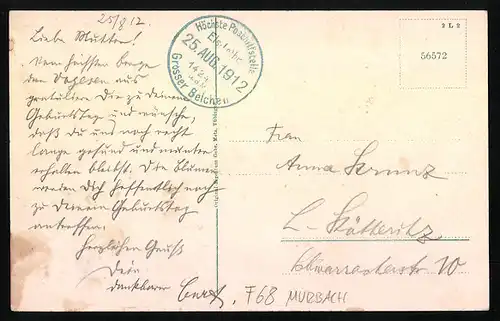 25/8 12.
Liebe Mutter!
Vom höchsten Berge
der Vogesen aus
gratuliere Dir zu deinem
Geburtstag und wünsche,
daß Du uns noch recht
lange gesund und munter
erhalten bleibst. Die Blumen
werden Dich hoffentlich noch
zu Deinem Geburtstag
antreffen.
Herzlichen Gruß
Dein
dankbarer
Höchste Posthilfsstelle
25. AUG. 1912.
1424
Grosser Belchen
2 L 2
56572
Frau
Anna
L-Stötteritz
10
F68 MURBACH